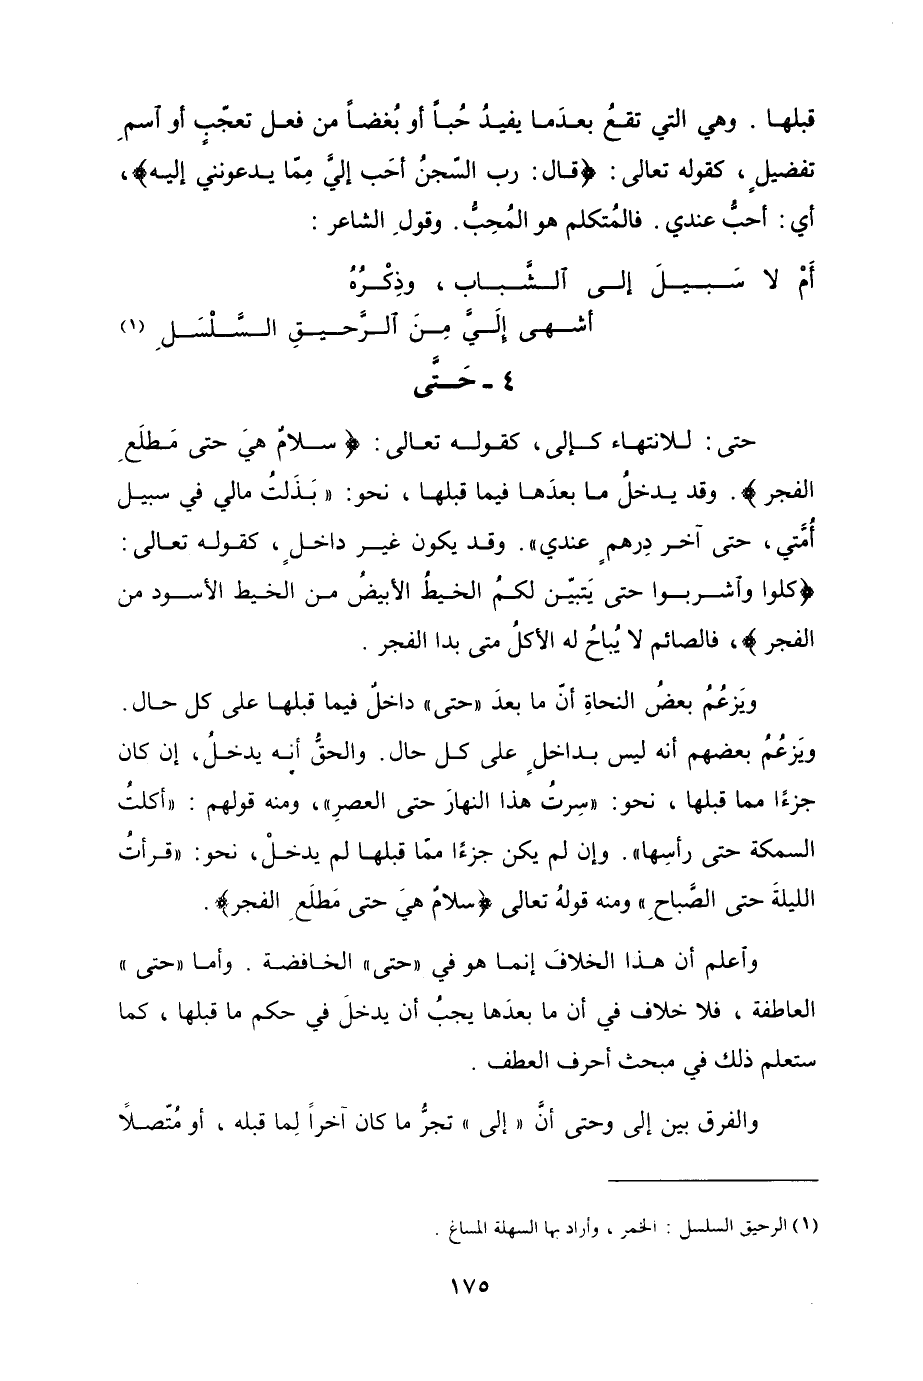 قبلها . وهي التي تقعُ بعدَما يفيدُ حُباً أو بُغضاً من فعل تعجّبٍ أو آسمِ
تفضيلٍ ، كقوله تعالى : ﴿قال: رب السّجنُ أحَب إليَّ مِمّا يدعونني إليه﴾،
أي : أحبُّ عندي . فالمُتكلم هو المُحِبُّ. وقولِ الشاعر :
أَمْ لا سَبيلَ إلى آلشَّبابِ ، وذِكْرُهُ
أشهى إلَيَّ مِنَ آلرَّحيقِ السَّلْسَلِ (١)
٤ - حَتَّى
حتى : للانتهاء كإلى ، كقوله تعالى : ﴿ سلامٌ هيَ حتى مَطلَعِ
الفجر ﴾. وقد يدخلُ ما بعدَها فيما قبلها ، نحو: « بَذَلتُ مالي في سبيل
أُمَّتي ، حتى آخر دِرهمٍ عندي». وقد يكون غير داخلٍ ، كقوله تعالى :
﴿كلوا وآشربوا حتى يَتبيّن لكمُ الخيطُ الأبيضُ من الخيط الأسود من
الفجر ﴾، فالصائم لا يُباحُ له الأكلُ متى بدا الفجر .
ويَزعُمُ بعضُ النحاةِ أنّ ما بعدَ «حتى» داخلٌ فيما قبلها على كل حال.
ويَزعُمُ بعضهم أنه ليس بداخلٍ على كل حال. والحقُّ أنه يدخلُ ، إن كان
جزءًا مما قبلها ، نحو: «سِرتُ هذا النهارَ حتى العصرِ»، ومنه قولهم : «أكلتُ
السمكة حتى رأسِها». وإن لم يكن جزءًا ممّا قبلها لم يدخلْ ، نحو: «قرأتُ
الليلةَ حتى الصَّباحِ » ومنه قولهُ تعالى ﴿سلامٌ هيَ حتى مَطلَعِ الفجر﴾.
وآعلم أن هذا الخلافَ إنما هو في «حتى» الخافضة . وأما «حتى »
العاطفة ، فلا خلاف في أن ما بعدَها يجبُ أن يدخلَ في حكم ما قبلها ، كما
ستعلم ذلك في مبحث أحرف العطف .
والفرق بين إلى وحتى أنَّ « إلى » تجرُّ ما كان آخراً لِما قبله ، أو مُتّصلاً
(١) الرحيق السلسل : الخمر ، وأراد بها السهلة المساغ .
١٧٥